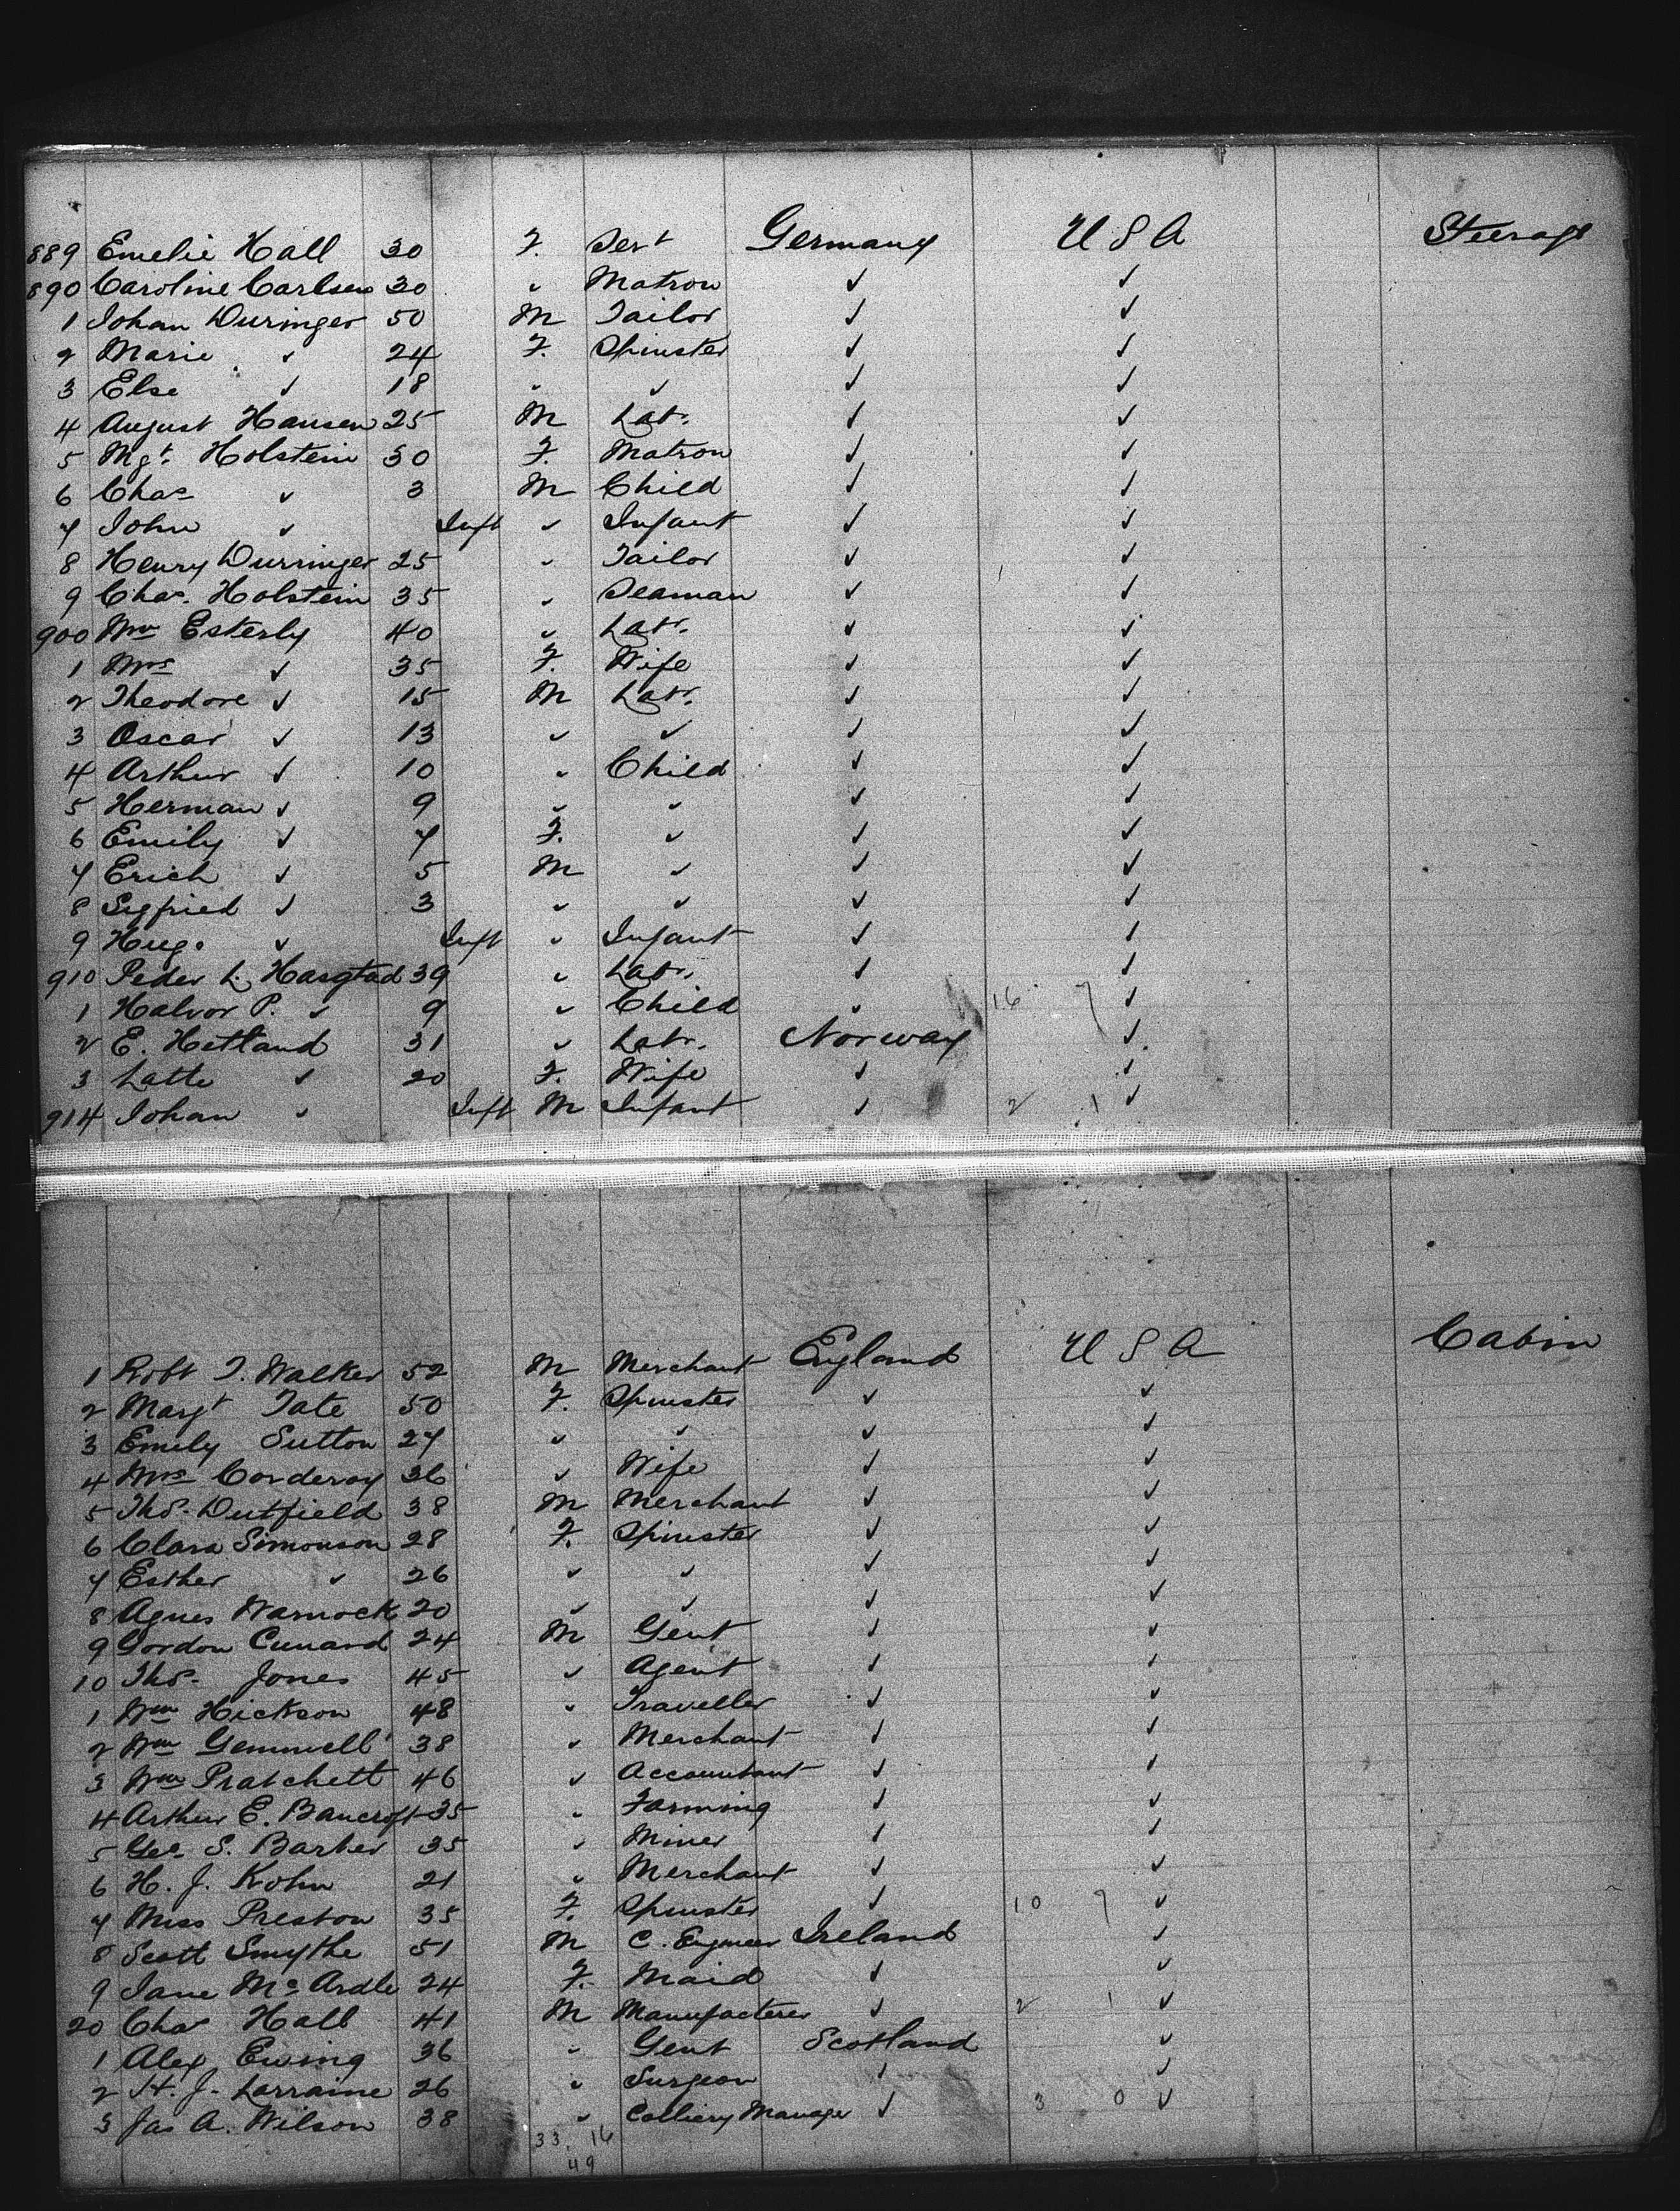 889 Emelie Hall 30 F. Servt Germany U S A Steerage
890 Caroline Carlsen 30 " Matron ✓ ✓
1 Johan Duringer 50 M Tailor ✓ ✓
2 Marie ✓ 24 F. Spinster ✓ ✓
3 Else ✓ 18 " ✓ ✓ ✓
4 August Hansen 25 M Labr. ✓ ✓
5 Mgt. Holstein 30 F. Matron ✓ ✓
6 Chas ✓ 3 M Child ✓ ✓
7 John ✓ Inft ✓ Infant ✓ ✓
8 Henry Durringer 25 " Tailor ✓ ✓
9 Chas. Holstein 35 " Seaman ✓ ✓
900 Mr Esterly 40 " Labr. ✓ ✓
1 Mrs ✓ 35 F. Wife ✓ ✓
2 Theodore ✓ 15 M Labr. ✓ ✓
3 Oscar ✓ 13 ✓ ✓ ✓ ✓
4 Arthur ✓ 10 " Child ✓ ✓
5 Herman ✓ 9 " ✓ ✓ ✓
6 Emily ✓ 7 F. ✓ ✓ ✓
7 Erich ✓ 5 M ✓ ✓ ✓
8 Segfried ✓ 3 " ✓ ✓ ✓
9 Hugo ✓ Inft " Infant ✓ ✓
910 Peder L. 39 " Labr. ✓ ✓
1 Halvor P. ✓ 9 " Child " 16 7 ✓
2 E. Hetland 31 " Labr. Norway ✓
3 Latte ✓ 20 F. Wife ✓ ✓
914 Johan ✓ Inft M Infant ✓ 2 1 ✓
1 Robt T. Walker 52 M Merchant England U S A Cabin
2 Margt Tate 50 F. Spinster ✓ ✓
3 Emily Sutton 27 " " ✓ ✓
4 Mrs Corderoy 36 " Wife ✓ ✓
5 Thos. Dutfield 38 M Merchant ✓ ✓
6 Clara Simonson 28 F. Spinster ✓ ✓
7 Esther ✓ 26 " " ✓ ✓
8 Agnes Warnock 20 " " ✓ ✓
9 Gordon Cunard 24 M Gent ✓ ✓
10 Thos. Jones 45 " Agent ✓ ✓
1 Wm Hickson 48 " Traveller ✓ ✓
2 Wm Gemmell 38 " Merchant ✓ ✓
3 Wm Pratchett 46 " Accountant ✓ ✓
4 Arthur E. Bancroft 35 " Farming ✓ ✓
5 Geo. S. Barber 35 " Miner ✓ ✓
6 H. J. Kohn 21 " Merchant ✓ ✓
7 Miss Preston 35 F. Spinster ✓ 10 7 ✓
8 Scott Smythe 51 M C. Engineer Ireland ✓
9 Jane McArdle 24 F. Maid ✓ ✓
20 Chas Hall 41 M Manufacterer ✓ 2 1 ✓
1 Alex Ewing 36 " Gent Scotland ✓
2 H. J. Lorraine 26 " Surgeon ✓ ✓
3 Jas A. Wilson 38 " Colliery Manager ✓ 3 0 ✓
33. 16
49